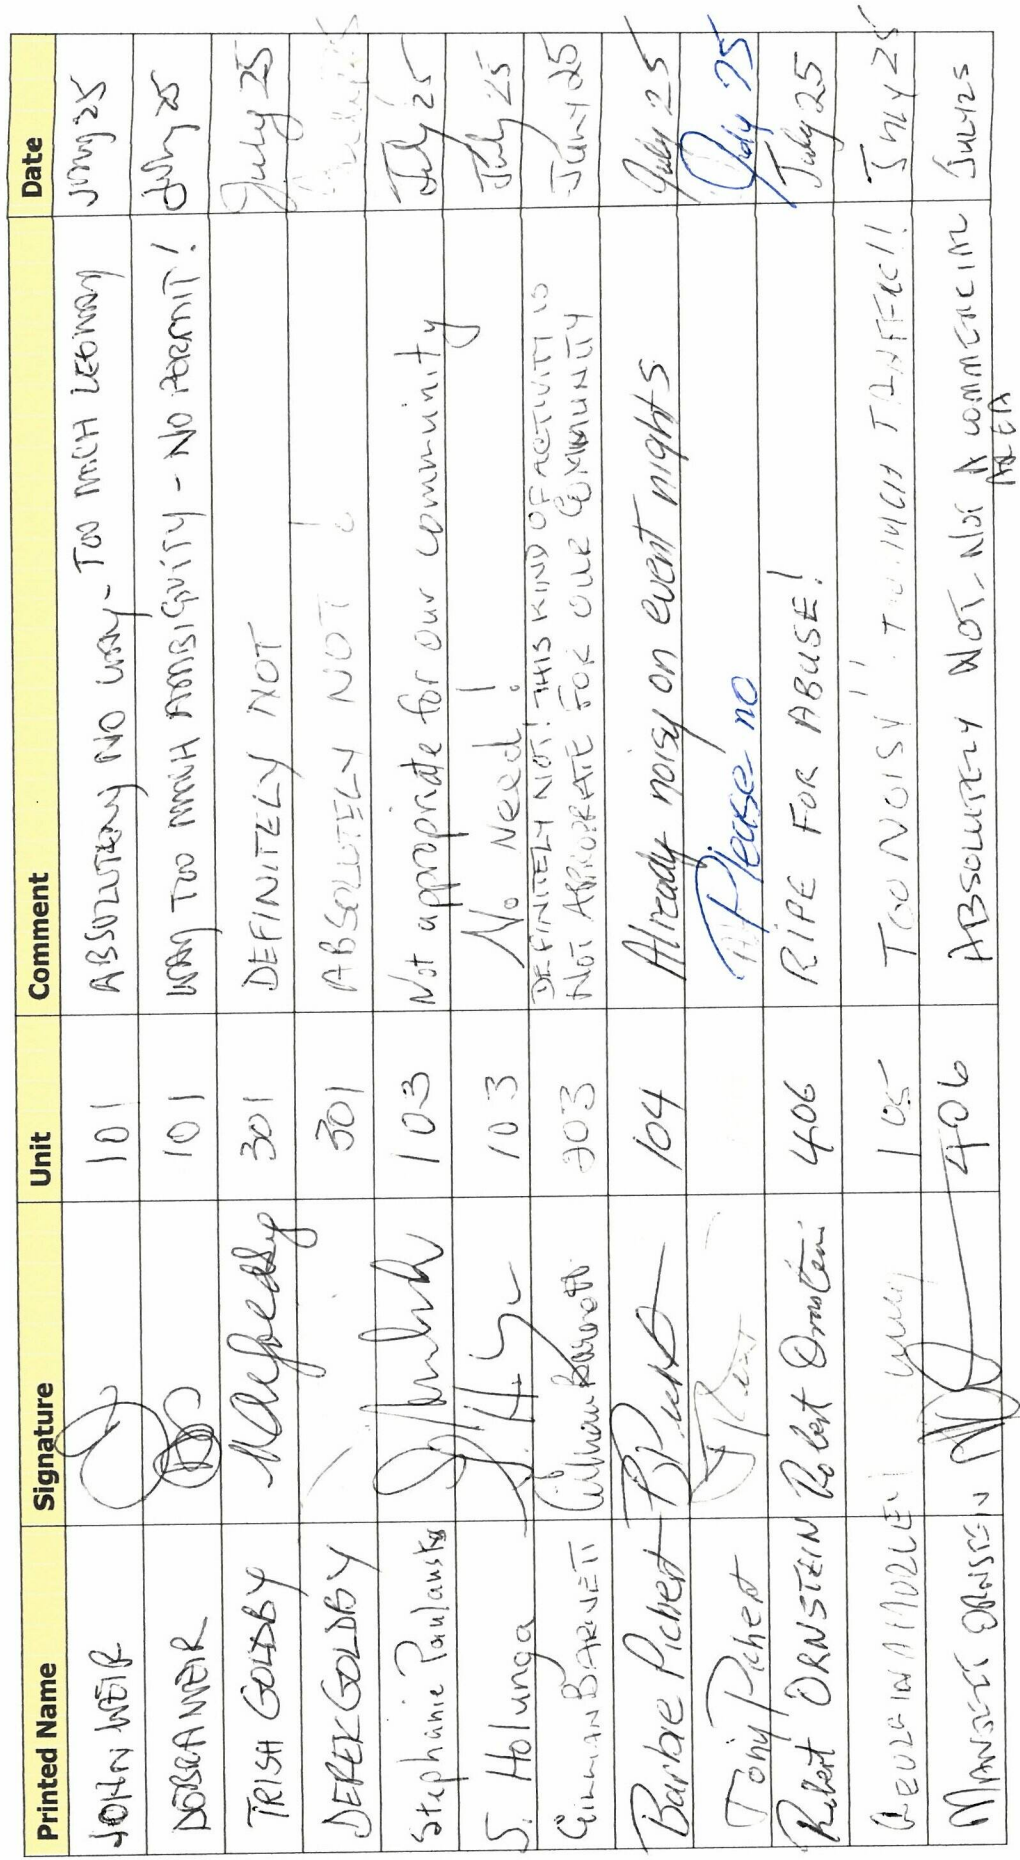 Printed Name Signature Unit Comment Date
JOHN WEIR 101 ABSOLUTELY NO WAY - TOO MUCH LEEWAY July 25
DEBRA WEIR 101 WAY TOO MUCH AMBIGUITY - NO PERMIT! July 25
TRISH GOLDBY 301 DEFINITELY NOT July 25
DEREK GOLDBY 301 ABSOLUTELY NOT !
Stephanie 103 Not appropriate for our community July 25
S. Holunga 103 No Need! July 25
GILLMAN BARNETT 203 DEFINITELY NOT! THIS KIND OF ACTIVITY IS
NOT APPROPRATE FOR OUR COMMUNITY July 25
Barbie Pichert 104 Already noisy on event nights July 25
Tony Pichert Please no July 25
Robert ORNSTEIN Robert Ornstein 406 RIPE FOR ABUSE! July 25
105 TOO NOISY !! TOO MUCH TRAFFIC!! July 25
406 ABSOLUTELY NOT. NOT A COMMERCIAL
AREA JULY 25